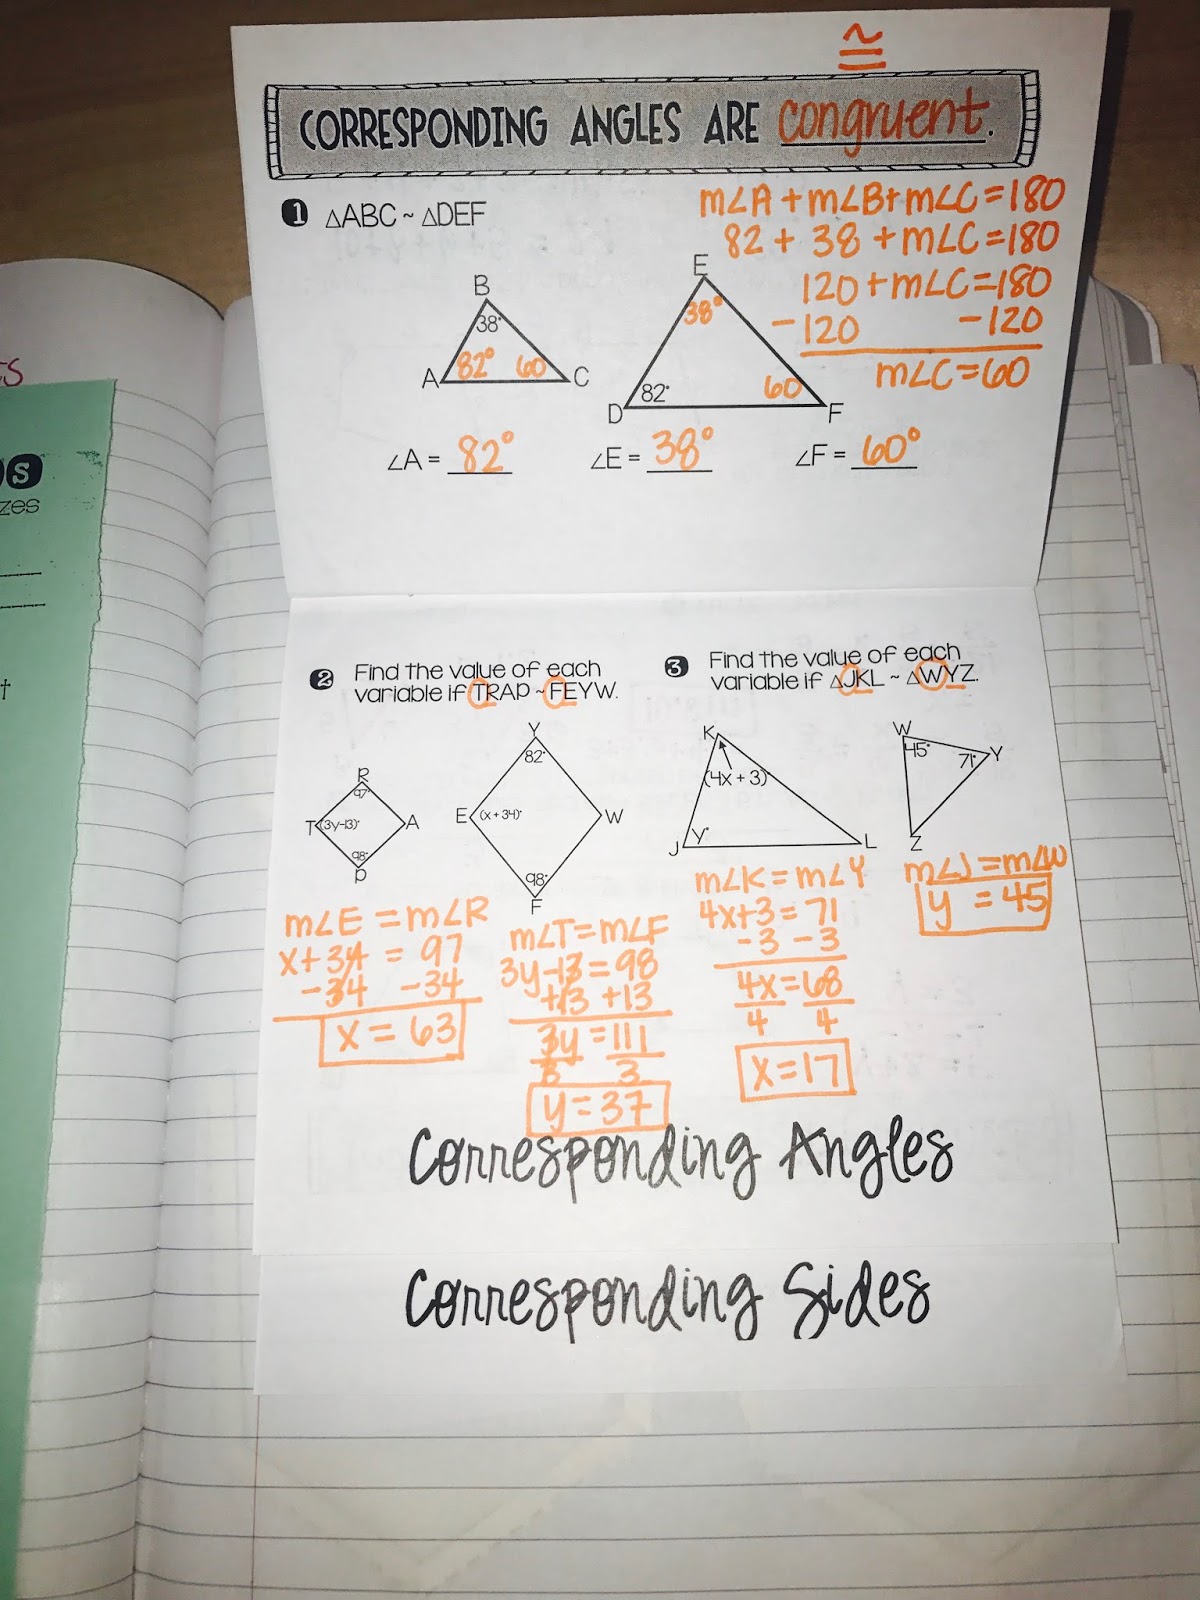 ≅
CORRESPONDING ANGLES ARE congruent.
1 △ABC ~ △DEF
m∠A + m∠B + m∠C = 180
82 + 38 + m∠C = 180
120 + m∠C = 180
-120 -120
m∠C = 60
B
38°
A 82° 60 C
E
38°
D 82° 60 F
∠A = 82° ∠E = 38° ∠F = 60°
S
zes
2 Find the value of each
variable if TRAP ~ FEYW.
R
97°
T (3y-13)° A
98°
P
Y
82°
E (x + 34)° W
98°
F
m∠E = m∠R
x + 34 = 97
-34 -34
x = 63
m∠T = m∠F
3y - 13 = 98
+13 +13
3y = 111
3 3
y = 37
3 Find the value of each
variable if △JKL ~ △WYZ.
K
(4x + 3)°
J y° L
W
45° 71° Y
Z
m∠K = m∠Y
4x + 3 = 71
-3 -3
4x = 68
4 4
x = 17
m∠J = m∠W
y = 45
Corresponding Angles
Corresponding Sides